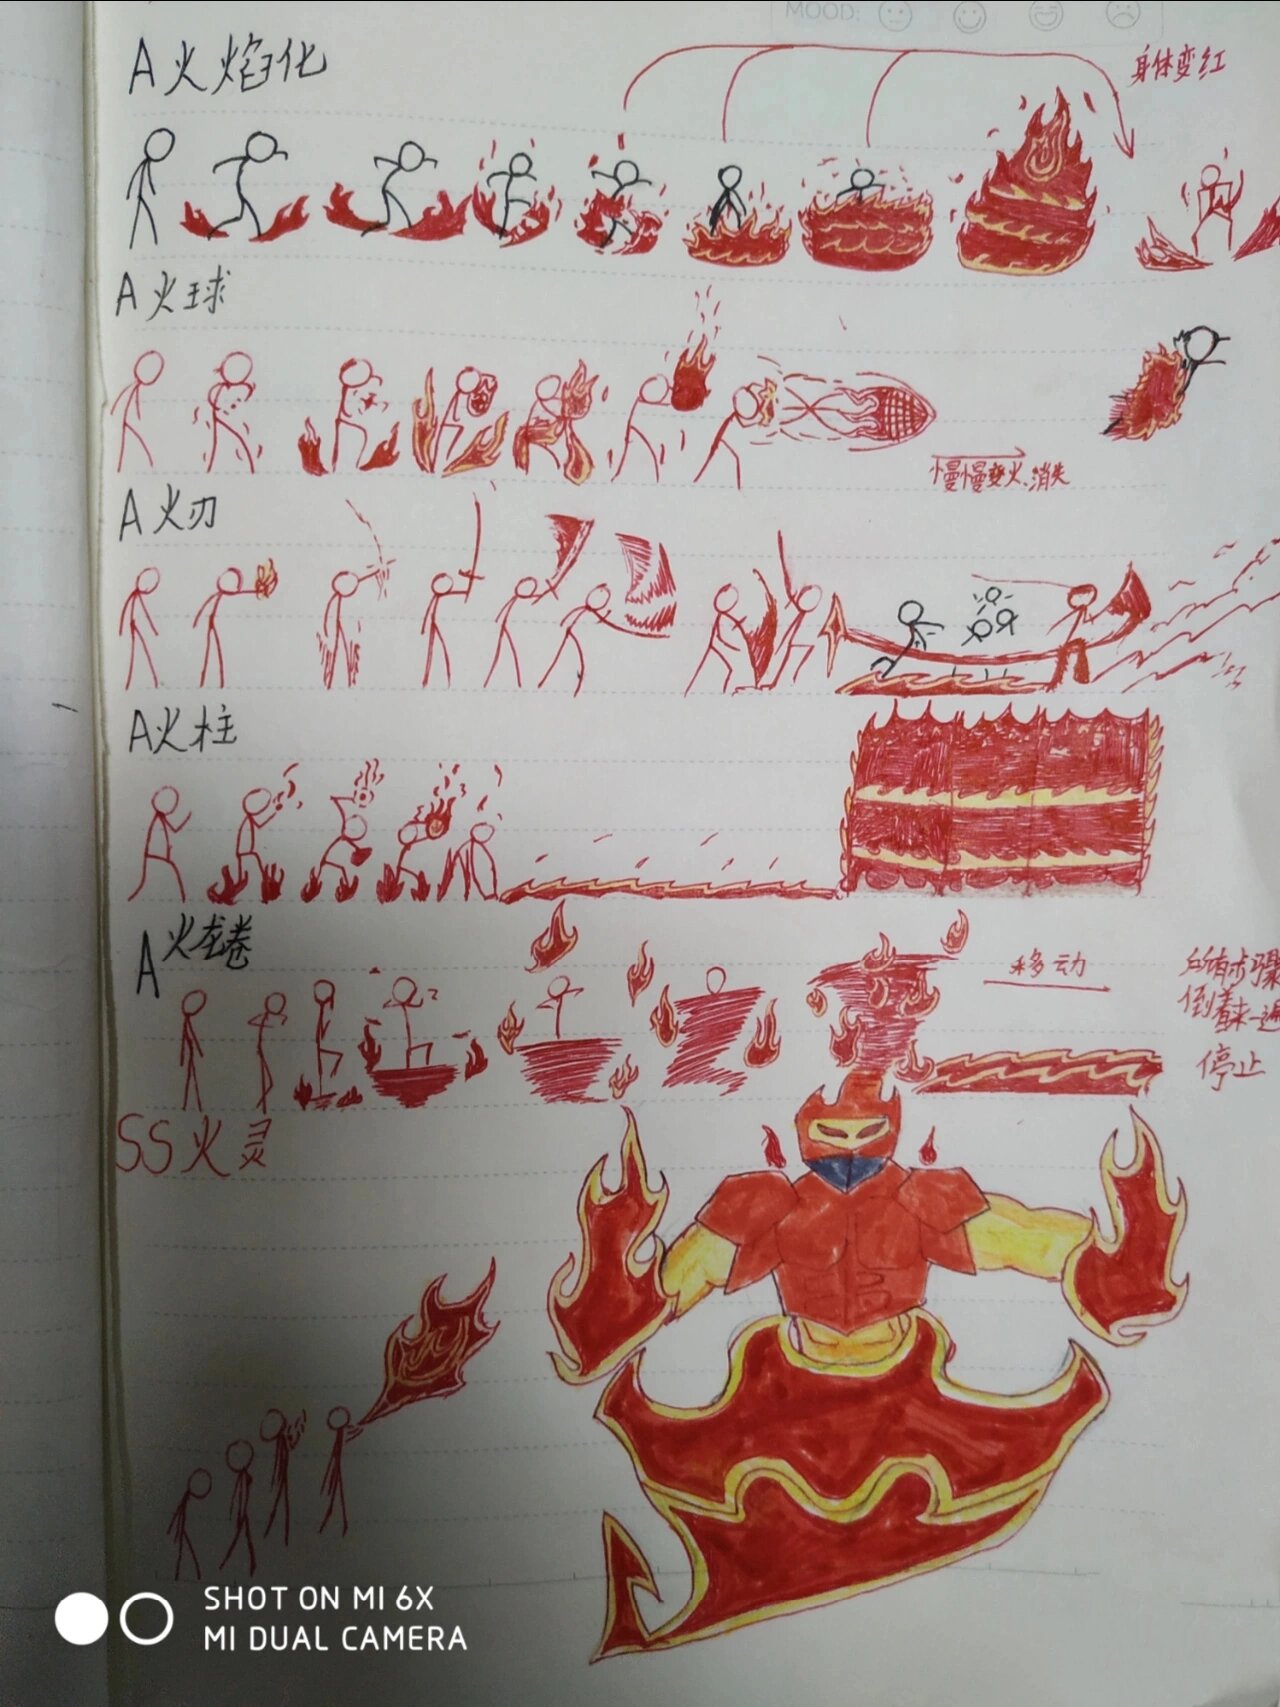 MOOD:
A火焰化
身体变红
A火球
慢慢变火、消失
A火刃
A火柱
A火龙卷
移动
所有步骤
倒着来一遍
停止
SS火灵
SHOT ON MI 6X
MI DUAL CAMERA